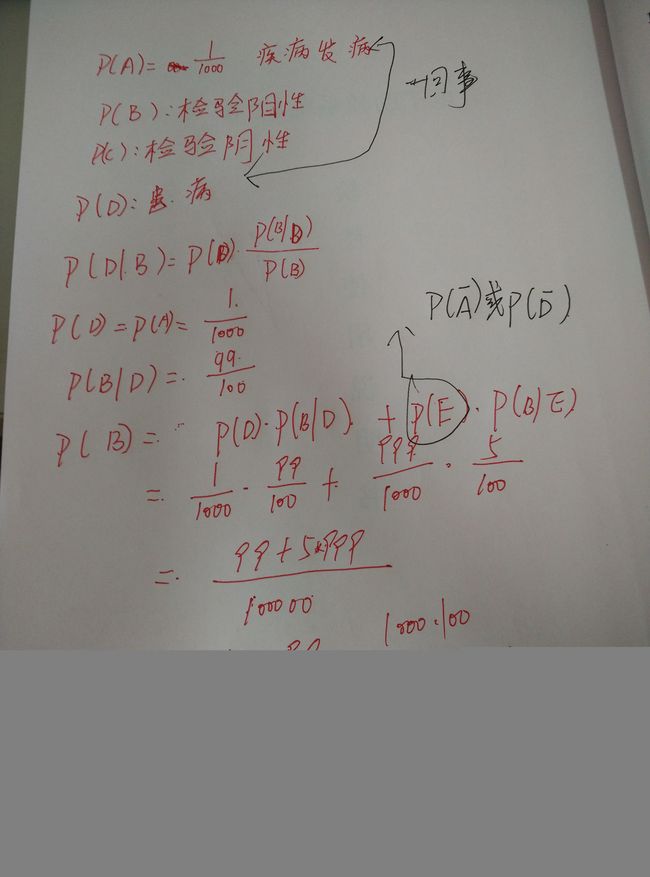 P(A)= 1/1000 疾病发病
一回事
P(B):检验阳性
P(C):检验阴性
P(D):患病
P(D|B)=P(D)·P(B|D)/P(B)
P(Ā)或P(D̄)
P(D)=P(A)=1/1000
P(B|D)=99/100
P(B)= P(D)·P(B|D)+P(E)·P(B|E)
= 1/1000 · 99/100 + 999/1000 · 5/100
= 99+5*999/100000
1000·100